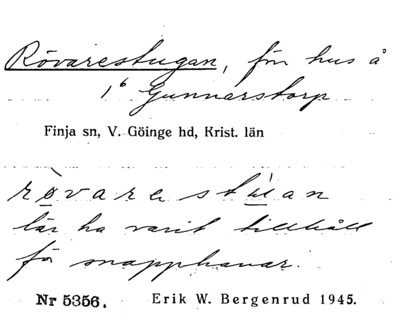 Rövarestugan, förr hus å
1⁶ Gunnarstorp
Finja sn, V. Göinge hd, Krist. län
lär ha varit tillhåll
för snapphanar.
Nr 5356. Erik W. Bergenrud 1945.